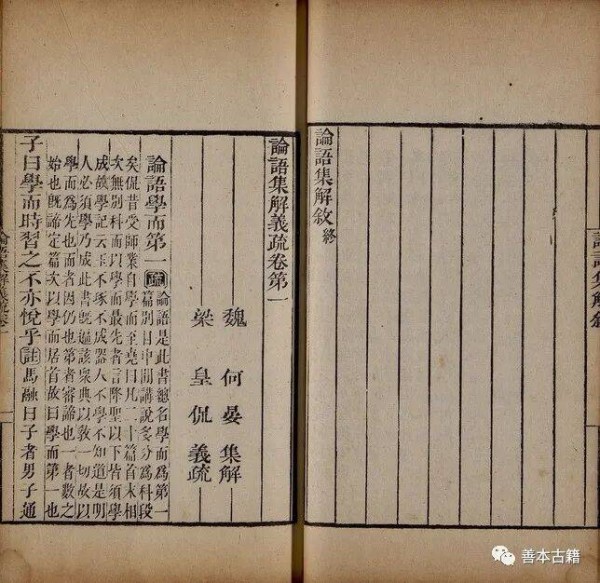 論語集解敘
論語集解敘終
論語集解義疏卷第一
魏 何晏 集解
梁 皇侃 義疏
論語學而第一 疏 論語是此書總名學而為第一
篇別目中間講說多分為科段
矣侃昔受師業自學而至堯曰凡二十篇首末相
次無別科而以學而最先者言降聖以下皆須學
成故學記云玉不琢不成器人不學不知道是明
人必須學乃成此書既遍該眾典以教一切故以
學而為先也而者因仍也第者審諦也一者數之
始也既諦定篇次以學而居首故曰學而第一也
子曰學而時習之不亦悅乎註馬融曰子者男子通
論語集解義疏卷一
善本古籍